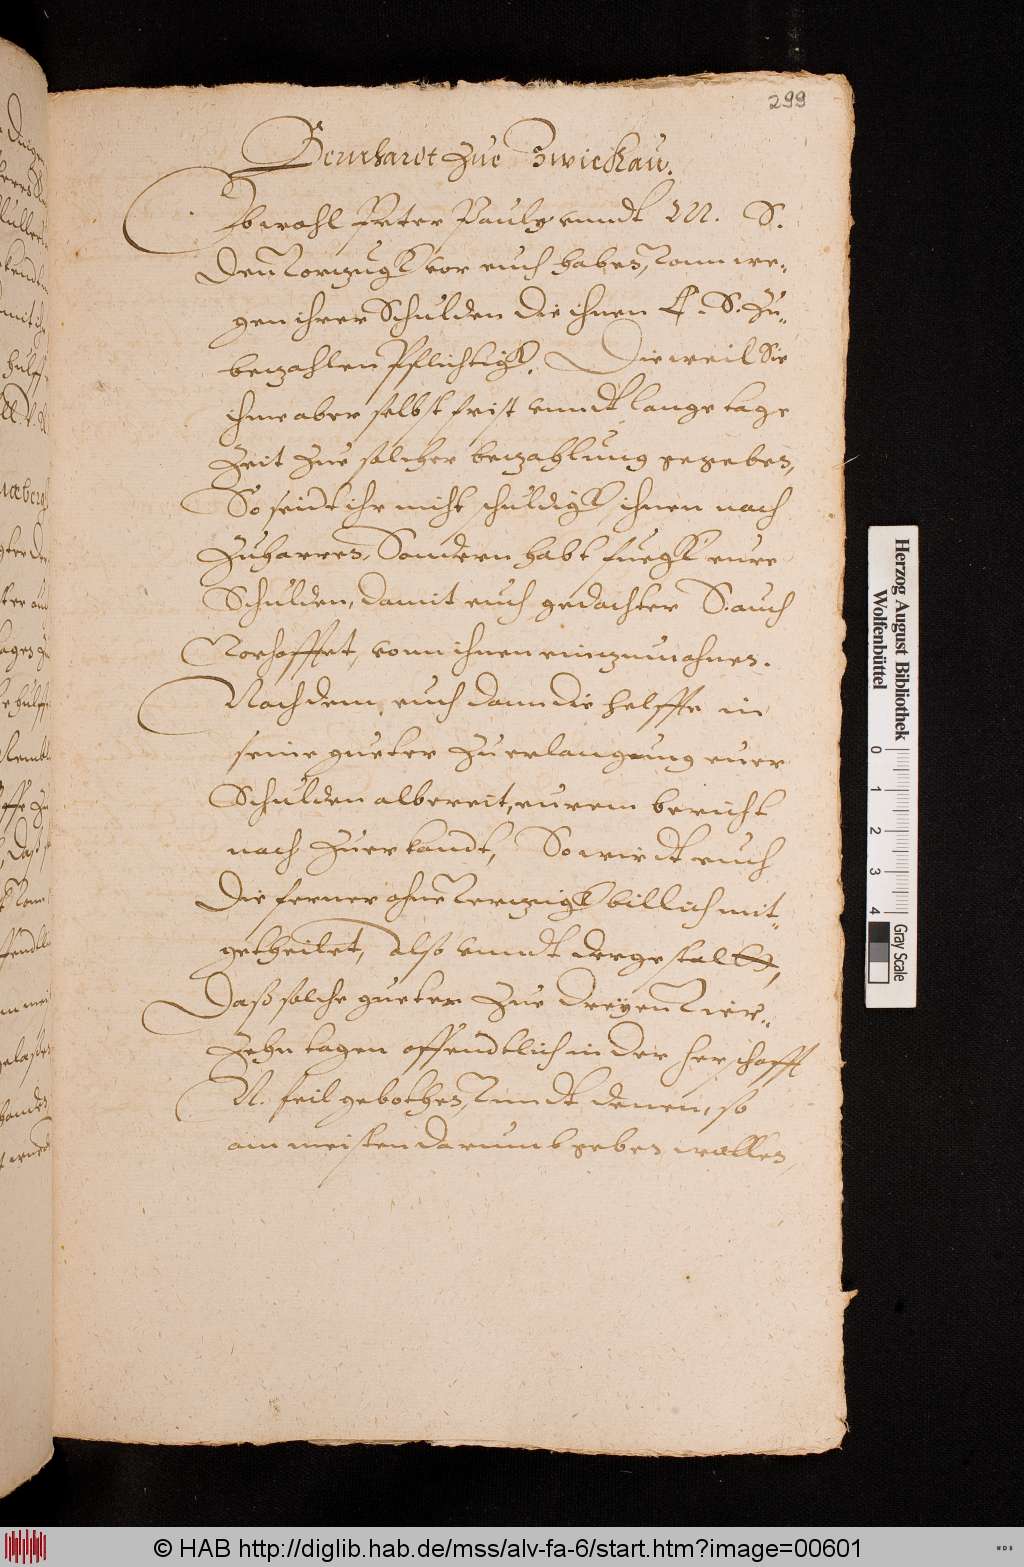 299
Bernhardt zue Zwickau.
Obwohl Peter Pauly vnndt M. S.
Den Vorzugk vor euch haben, Vonn we-
gen ihrer Schulden die ihnen C. S. Zu-
bezahlen Pflichtigk. Dieweil Sie
ihme aber selbst frist vnndt lange tage
Zeit Zue solcher bezahlung gegeben,
So seidt ihr nicht schuldigk ihnen nach
Zuharren, Sondern habt fuegk eure
Schulden, damit euch gedachter S. auch
Vorhafftet, vonn ihnen einzumahnen.
Nachdem euch dann die helffte in
seine gueter Zu erlangung euer
Schulden albereit, eurem bericht
nach Zuerkandt, So wirdt euch
Die ferner ohne Verzugk billich mit-
getheilet, also vnndt dergestaltt,
Daß solche gueter Zue dreyen Vier-
Zehn tagen offendtlich in der herschafft
N. feil gebothen, Vnndt denen, so
am meisten darumb geben wollen,
Herzog August Bibliothek
Wolfenbüttel
0 1 2 3 4
Gray Scale
© HAB http://diglib.hab.de/mss/alv-fa-6/start.htm?image=00601